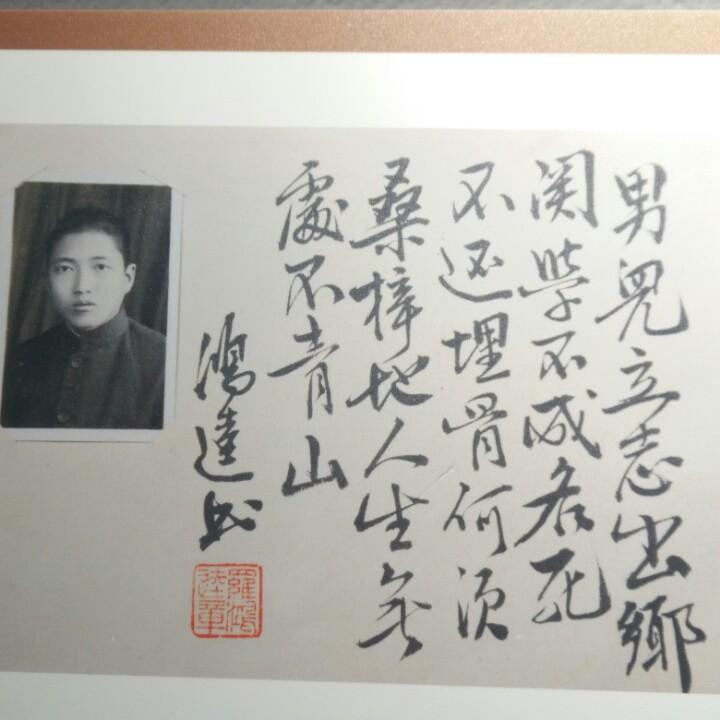 男兒立志出鄉
関學不成名死
不还埋骨何須
桑梓地人生無
處不青山
鴻逵書
羅鴻
逵章